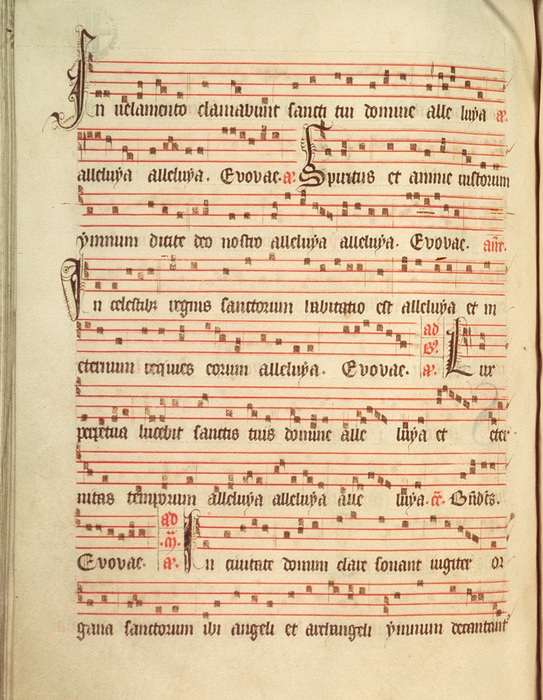 In uelamento clamabunt sancti tui domine alle luya a.
alleluya alleluya. Evovae. a. Spiritus et anime iustorum
ymnum dicite deo nostro alleluya alleluya. Evovae. ant.
In celestibz regnis sanctorum habitatio est alleluya et in
eternum requies eorum alleluya. Evovae. ad B. a. Lux
perpetua lucebit sanctis tuis domine alle luya et eter
nitas temporum alleluya alleluya alle luya. Bndcs.
Evovae. ad m. a. In ciuitate domini clare sonant iugiter or
gana sanctorum ibi angeli et archangeli ymnum decantant